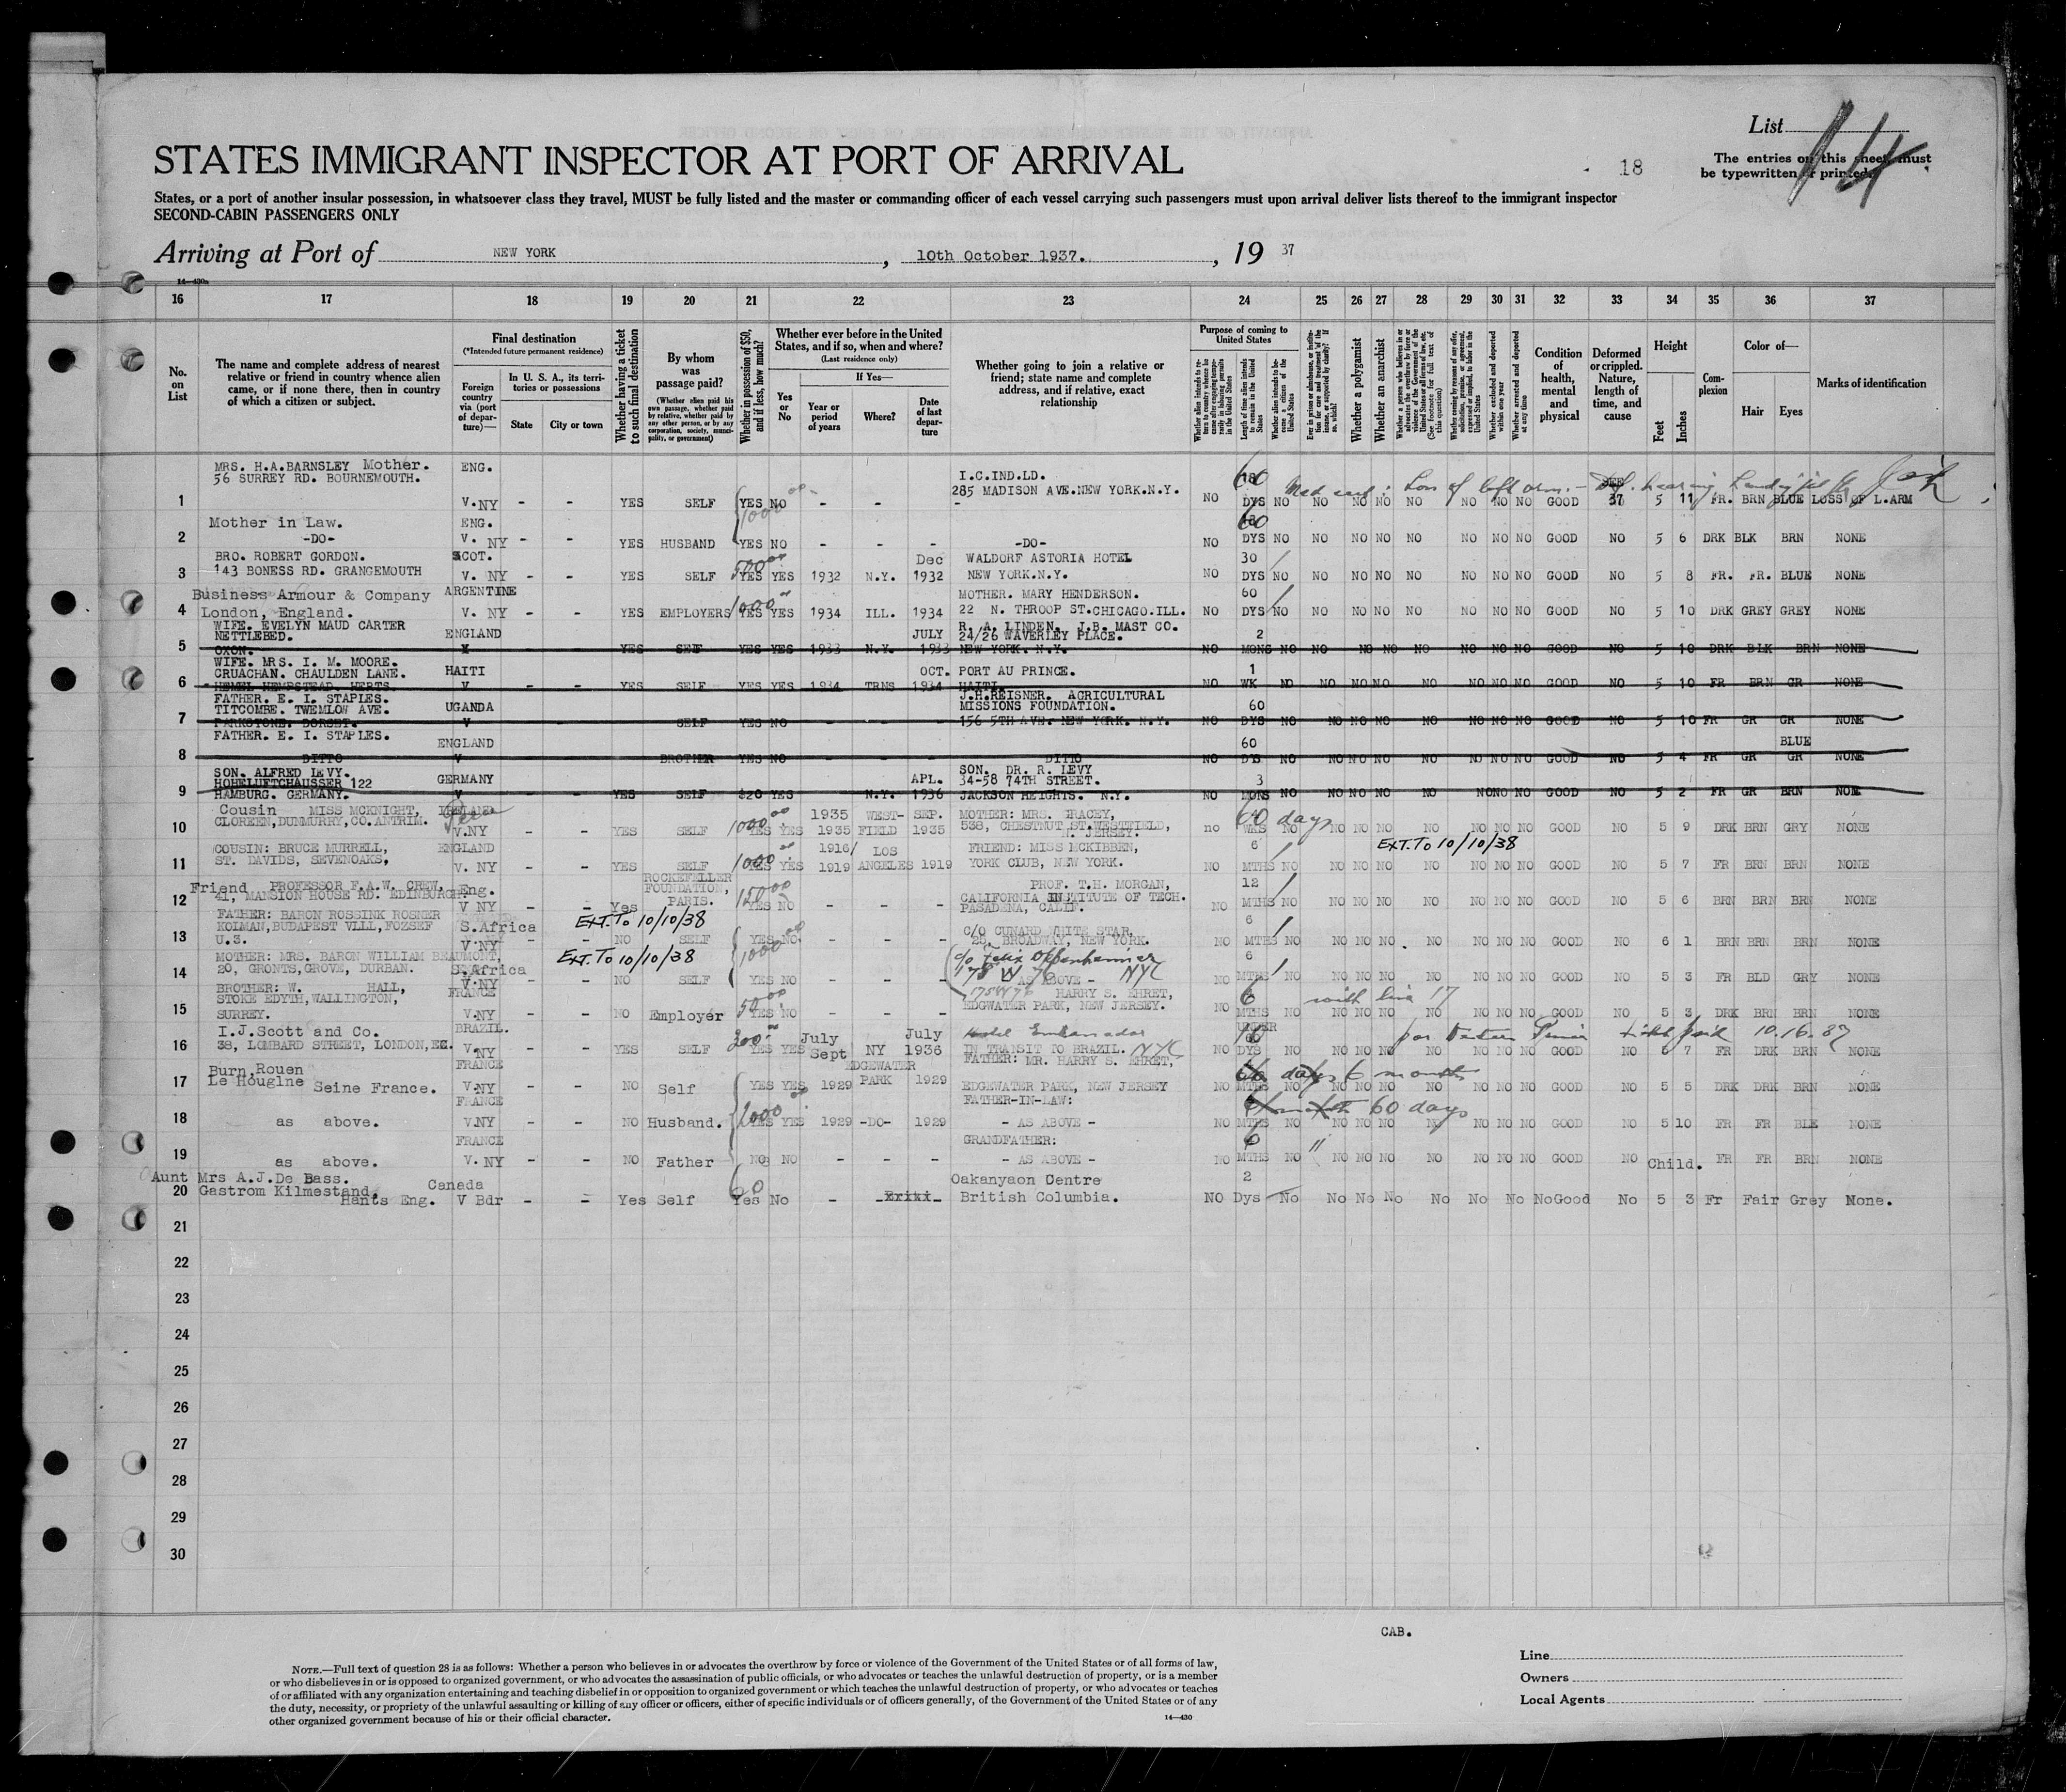 List 14
STATES IMMIGRANT INSPECTOR AT PORT OF ARRIVAL
18
The entries on this sheet must
be typewritten or printed.
States, or a port of another insular possession, in whatsoever class they travel, MUST be fully listed and the master or commanding officer of each vessel carrying such passengers must upon arrival deliver lists thereof to the immigrant inspector
SECOND-CABIN PASSENGERS ONLY
Arriving at Port of NEW YORK, 10th October 1937., 19 37
14—430a
16 17 18 19 20 21 22 23 24 25 26 27 28 29 30 31 32 33 34 35 36 37
No. on List
The name and complete address of nearest relative or friend in country whence alien came, or if none there, then in country of which a citizen or subject.
Final destination
(*Intended future permanent residence)
Foreign country via (port of departure)—
In U. S. A., its territories or possessions
State
City or town
Whether having a ticket to such final destination
By whom was passage paid?
(Whether alien paid his own passage, whether paid by relative, whether paid by any other person, or by any corporation, society, municipality, or government)
Whether in possession of $50, and if less, how much?
Whether ever before in the United States, and if so, when and where?
(Last residence only)
Yes or No
If Yes—
Year or period of years
Where?
Date of last departure
Whether going to join a relative or friend; state name and complete address, and if relative, exact relationship
Purpose of coming to United States
Length of time alien intends to remain in the United States
Whether alien intends to become a citizen of the United States
Whether a polygamist
Whether an anarchist
Whether excluded and deported within one year
Whether arrested and deported at any time
Condition of health, mental and physical
Deformed or crippled. Nature, length of time, and cause
Height
Feet
Inches
Complexion
Color of—
Hair
Eyes
Marks of identification
MRS. H.A.BARNSLEY Mother. ENG. I.C.IND.LD. 60
56 SURREY RD. BOURNEMOUTH. 285 MADISON AVE.NEW YORK.N.Y.
1 V.NY - - YES SELF YES NO 1000 - - - NO DYS NO NO NO NO NO NO NO NO GOOD 37 5 11 FR. BRN BLUE LOSS OF L.ARM
Mother in Law. ENG. 60
2 -DO- V. NY - - YES HUSBAND YES NO - - - -DO- NO DYS NO NO NO NO NO NO NO NO GOOD NO 5 6 DRK BLK BRN NONE
BRO. ROBERT GORDON. SCOT. Dec WALDORF ASTORIA HOTEL 30
3 143 BONESS RD. GRANGEMOUTH V. NY - - YES SELF 500 YES YES 1932 N.Y. 1932 NEW YORK.N.Y. NO DYS NO NO NO NO NO NO NO NO GOOD NO 5 8 FR. FR. BLUE NONE
Business Armour & Company ARGENTINE MOTHER. MARY HENDERSON. 60
4 London, England. V. NY - - YES EMPLOYERS 1000 YES YES 1934 ILL. 1934 22 N. THROOP ST.CHICAGO.ILL. NO DYS NO NO NO NO NO NO NO NO GOOD NO 5 10 DRK GREY GREY NONE
WIFE. EVELYN MAUD CARTER R. A. LINDEN. J.B. MAST CO.
NETTLEBED. ENGLAND JULY 24/26 WAVERLEY PLACE. 2
5 OXON. V YES SELF YES YES 1933 N.Y. 1933 NEW YORK. N.Y. NO MONS NO NO NO NO NO NO NO NO GOOD NO 5 10 DRK BLK BRN NONE
WIFE. MRS. I. M. MOORE.
CRUACHAN. CHAULDEN LANE. HAITI OCT. PORT AU PRINCE. 1
6 HEMEL HEMPSTEAD HERTS V YES SELF YES YES 1934 TRNS 1934 HAITI. NO WK NO NO NO NO NO NO NO NO GOOD NO 5 10 FR BRN GR NONE
FATHER. E. I. STAPLES. J.H.REISNER. AGRICULTURAL
TITCOMBE. TWEMLOW AVE. UGANDA MISSIONS FOUNDATION. 60
7 PARKSTONE. DORSET. V SELF YES NO 156 5TH AVE. NEW YORK. N.Y. NO DYS NO NO NO NO NO NO NO NO GOOD NO 5 10 FR GR GR NONE
FATHER. E. I. STAPLES. ENGLAND 60 BLUE
8 DITTO V BROTHER YES NO DITTO NO DYS NO NO NO NO NO NO NO NO GOOD NO 5 4 FR GR GR NONE
SON. ALFRED LEVY. SON. DR. R. LEVY
HOHELUFTCHAUSSER 122 GERMANY APL. 34-58 74TH STREET. 3
9 HAMBURG. GERMANY. V YES SELF $20 YES N.Y. 1936 JACKSON HEIGHTS. N.Y. NO MONS NO NO NO NO NO NO NO NO GOOD NO 5 2 FR GR BRN NONE
Cousin MISS MCKNIGHT, IRELAND 1935 WEST- SEP. MOTHER: MRS. TRACEY, 60 days
10 CLOREEN,DUNMURRY,CO.ANTRIM. V.NY - - YES SELF 1000 YES YES 1935 FIELD 1935 538, CHESTNUT ST.WESTFIELD, N. JERSEY. no WKS NO NO NO NO NO NO NO NO GOOD NO 5 9 DRK BRN GRY NONE
COUSIN: BRUCE MURRELL, ENGLAND 1916/ LOS FRIEND: MISS MCKIBBEN, 6 EXT. TO 10/10/38
11 ST. DAVIDS, SEVENOAKS, V. NY - - YES SELF 1000 YES YES 1919 ANGELES 1919 YORK CLUB, NEW YORK. NO MTHS NO NO NO NO NO NO NO NO GOOD NO 5 7 FR BRN BRN NONE
Friend PROFESSOR F.A.W. CREW, Eng. ROCKEFELLER FOUNDATION, PROF. T.H. MORGAN, 12
12 41, MANSION HOUSE RD. EDINBURGH. V NY - - Yes PARIS. 150 YES NO - - - CALIFORNIA INSTITUTE OF TECH. PASADENA, CALIF. NO MTHS NO NO NO NO NO NO NO NO GOOD NO 5 6 BRN BRN BRN NONE
FATHER: BARON ROSSINK ROSNER EXT. TO 10/10/38 6
KOLMAN,BUDAPEST VLLL,FOZSEF S.Africa C/O CUNARD WHITE STAR,
13 U.3. V.NY - - NO SELF YES NO 1000 - - - 25, BROADWAY, NEW YORK. NO MTHS NO NO NO NO NO NO NO NO GOOD NO 6 1 BRN BRN BRN NONE
MOTHER: MRS. BARON WILLIAM BEAUMONT, EXT. TO 10/10/38 c/o Felix Oppenheimer 6
14 20, GRONTS,GROVE, DURBAN. S.Africa V.NY - - NO SELF YES NO - - - 178 W 76 NYC - AS ABOVE - NO MTHS NO NO NO NO NO NO NO NO GOOD NO 5 3 FR BLD GRY NONE
BROTHER: W. HALL, FRANCE
STOKE EDYTH,WALLINGTON, HARRY S. EHRET, 6 with line 17
15 SURREY. V.NY - - NO Employer 50 YES NO - - - EDGWATER PARK, NEW JERSEY. NO MTHS NO NO NO NO NO NO NO NO GOOD NO 5 3 DRK BRN BRN NONE
I.J.Scott and Co. BRAZIL. July July Hotel Embassador UNDER
16 38, LOMBARD STREET, LONDON,EC. V.NY - - YES SELF 300 YES YES Sept NY 1936 IN TRANSIT TO BRAZIL. NYC NO DYS NO NO NO NO NO NO NO NO GOOD NO 6 7 FR DRK BRN NONE
Burn,Rouen FRANCE EDGEWATER FATHER: MR. HARRY S. EHRET, 6 months
17 Le Houglne Seine France. V.NY - - NO Self YES YES 1929 PARK 1929 EDGEWATER PARK, NEW JERSEY NO MTHS NO NO NO NO NO NO NO NO GOOD NO 5 5 DRK DRK BRN NONE
FRANCE FATHER-IN-LAW: 60 days
18 as above. V.NY - - NO Husband. 1000 YES YES 1929 -DO- 1929 - AS ABOVE - NO MTHS NO NO NO NO NO NO NO NO GOOD NO 5 10 FR FR BLE NONE
FRANCE GRANDFATHER: 6 "
19 as above. V. NY - - NO Father NO NO - - - - AS ABOVE - NO MTHS NO NO NO NO NO NO NO NO GOOD NO Child. FR FR BRN NONE
Aunt Mrs A.J.De Bass. Canada Oakanyaon Centre 2
20 Gastrom Kilmestand, Hants Eng. V Bdr - - Yes Self 60 Yes No - - British Columbia. NO Dys No No No No No No No No Good No 5 3 Fr Fair Grey None.
21
22
23
24
25
26
27
28
29
30
CAB.
NOTE.—Full text of question 28 is as follows: Whether a person who believes in or advocates the overthrow by force or violence of the Government of the United States or of all forms of law,
or who disbelieves in or is opposed to organized government, or who advocates the assassination of public officials, or who advocates or teaches the unlawful destruction of property, or is a member
of or affiliated with any organization entertaining and teaching disbelief in or opposition to organized government or which teaches the unlawful destruction of property, or who advocates or teaches
the duty, necessity, or propriety of the unlawful assaulting or killing of any officer or officers, either of specific individuals or of officers generally, of the Government of the United States or of any
other organized government because of his or their official character.
14—430
Line
Owners
Local Agents